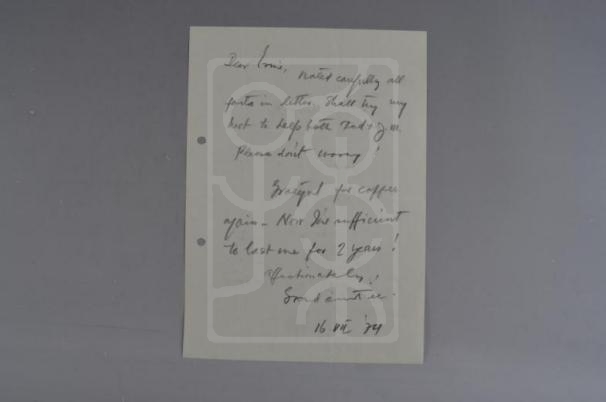 Dear Ernie,
Noted carefully all
facts in letter. Shall try my
best to help both
Please don't worry!
Grateful for coffee
again - Now I've sufficient
to last me for 2 years!
Affectionately,
16 VII '74